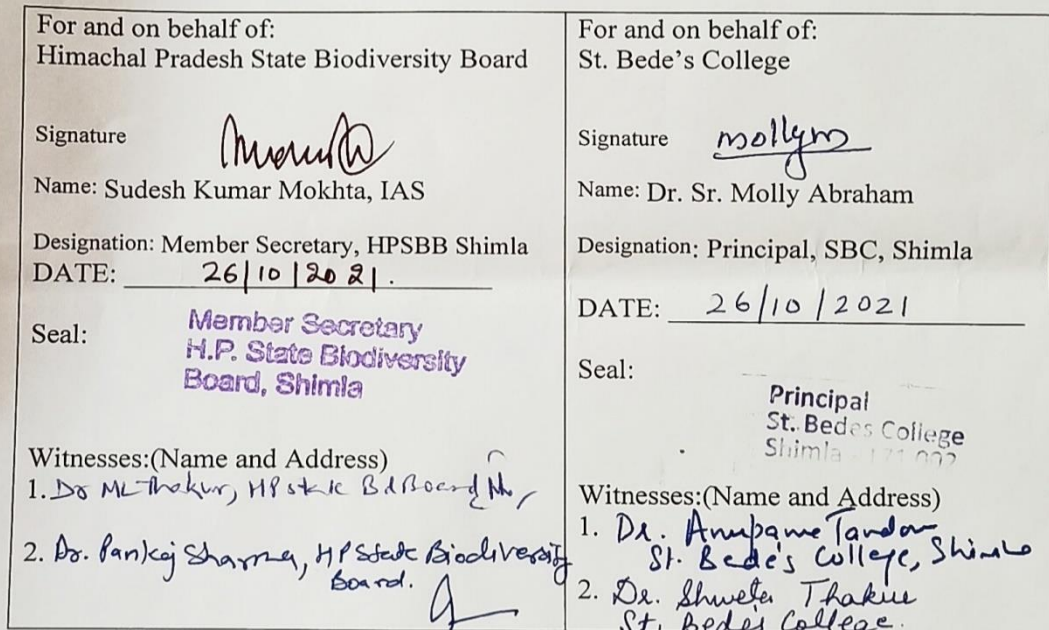 For and on behalf of:
Himachal Pradesh State Biodiversity Board
Signature
Name: Sudesh Kumar Mokhta, IAS
Designation: Member Secretary, HPSBB Shimla
DATE: 26/10/2021.
Seal:
Member Secretary
H.P. State Biodiversity
Board, Shimla
Witnesses:(Name and Address)
1. Dr ML Thakur, HP State Bd Board
2. Dr. Pankaj Sharma, HP State Biodiversity
Board.
For and on behalf of:
St. Bede's College
Signature mollym
Name: Dr. Sr. Molly Abraham
Designation: Principal, SBC, Shimla
DATE: 26/10/2021
Seal:
Principal
St. Bedes College
Shimla - 171 002
Witnesses:(Name and Address)
1. Dr. Anupama Tandon
St. Bede's College, Shimla
2. Dr. Shweta Thakur
St. Bede's College.